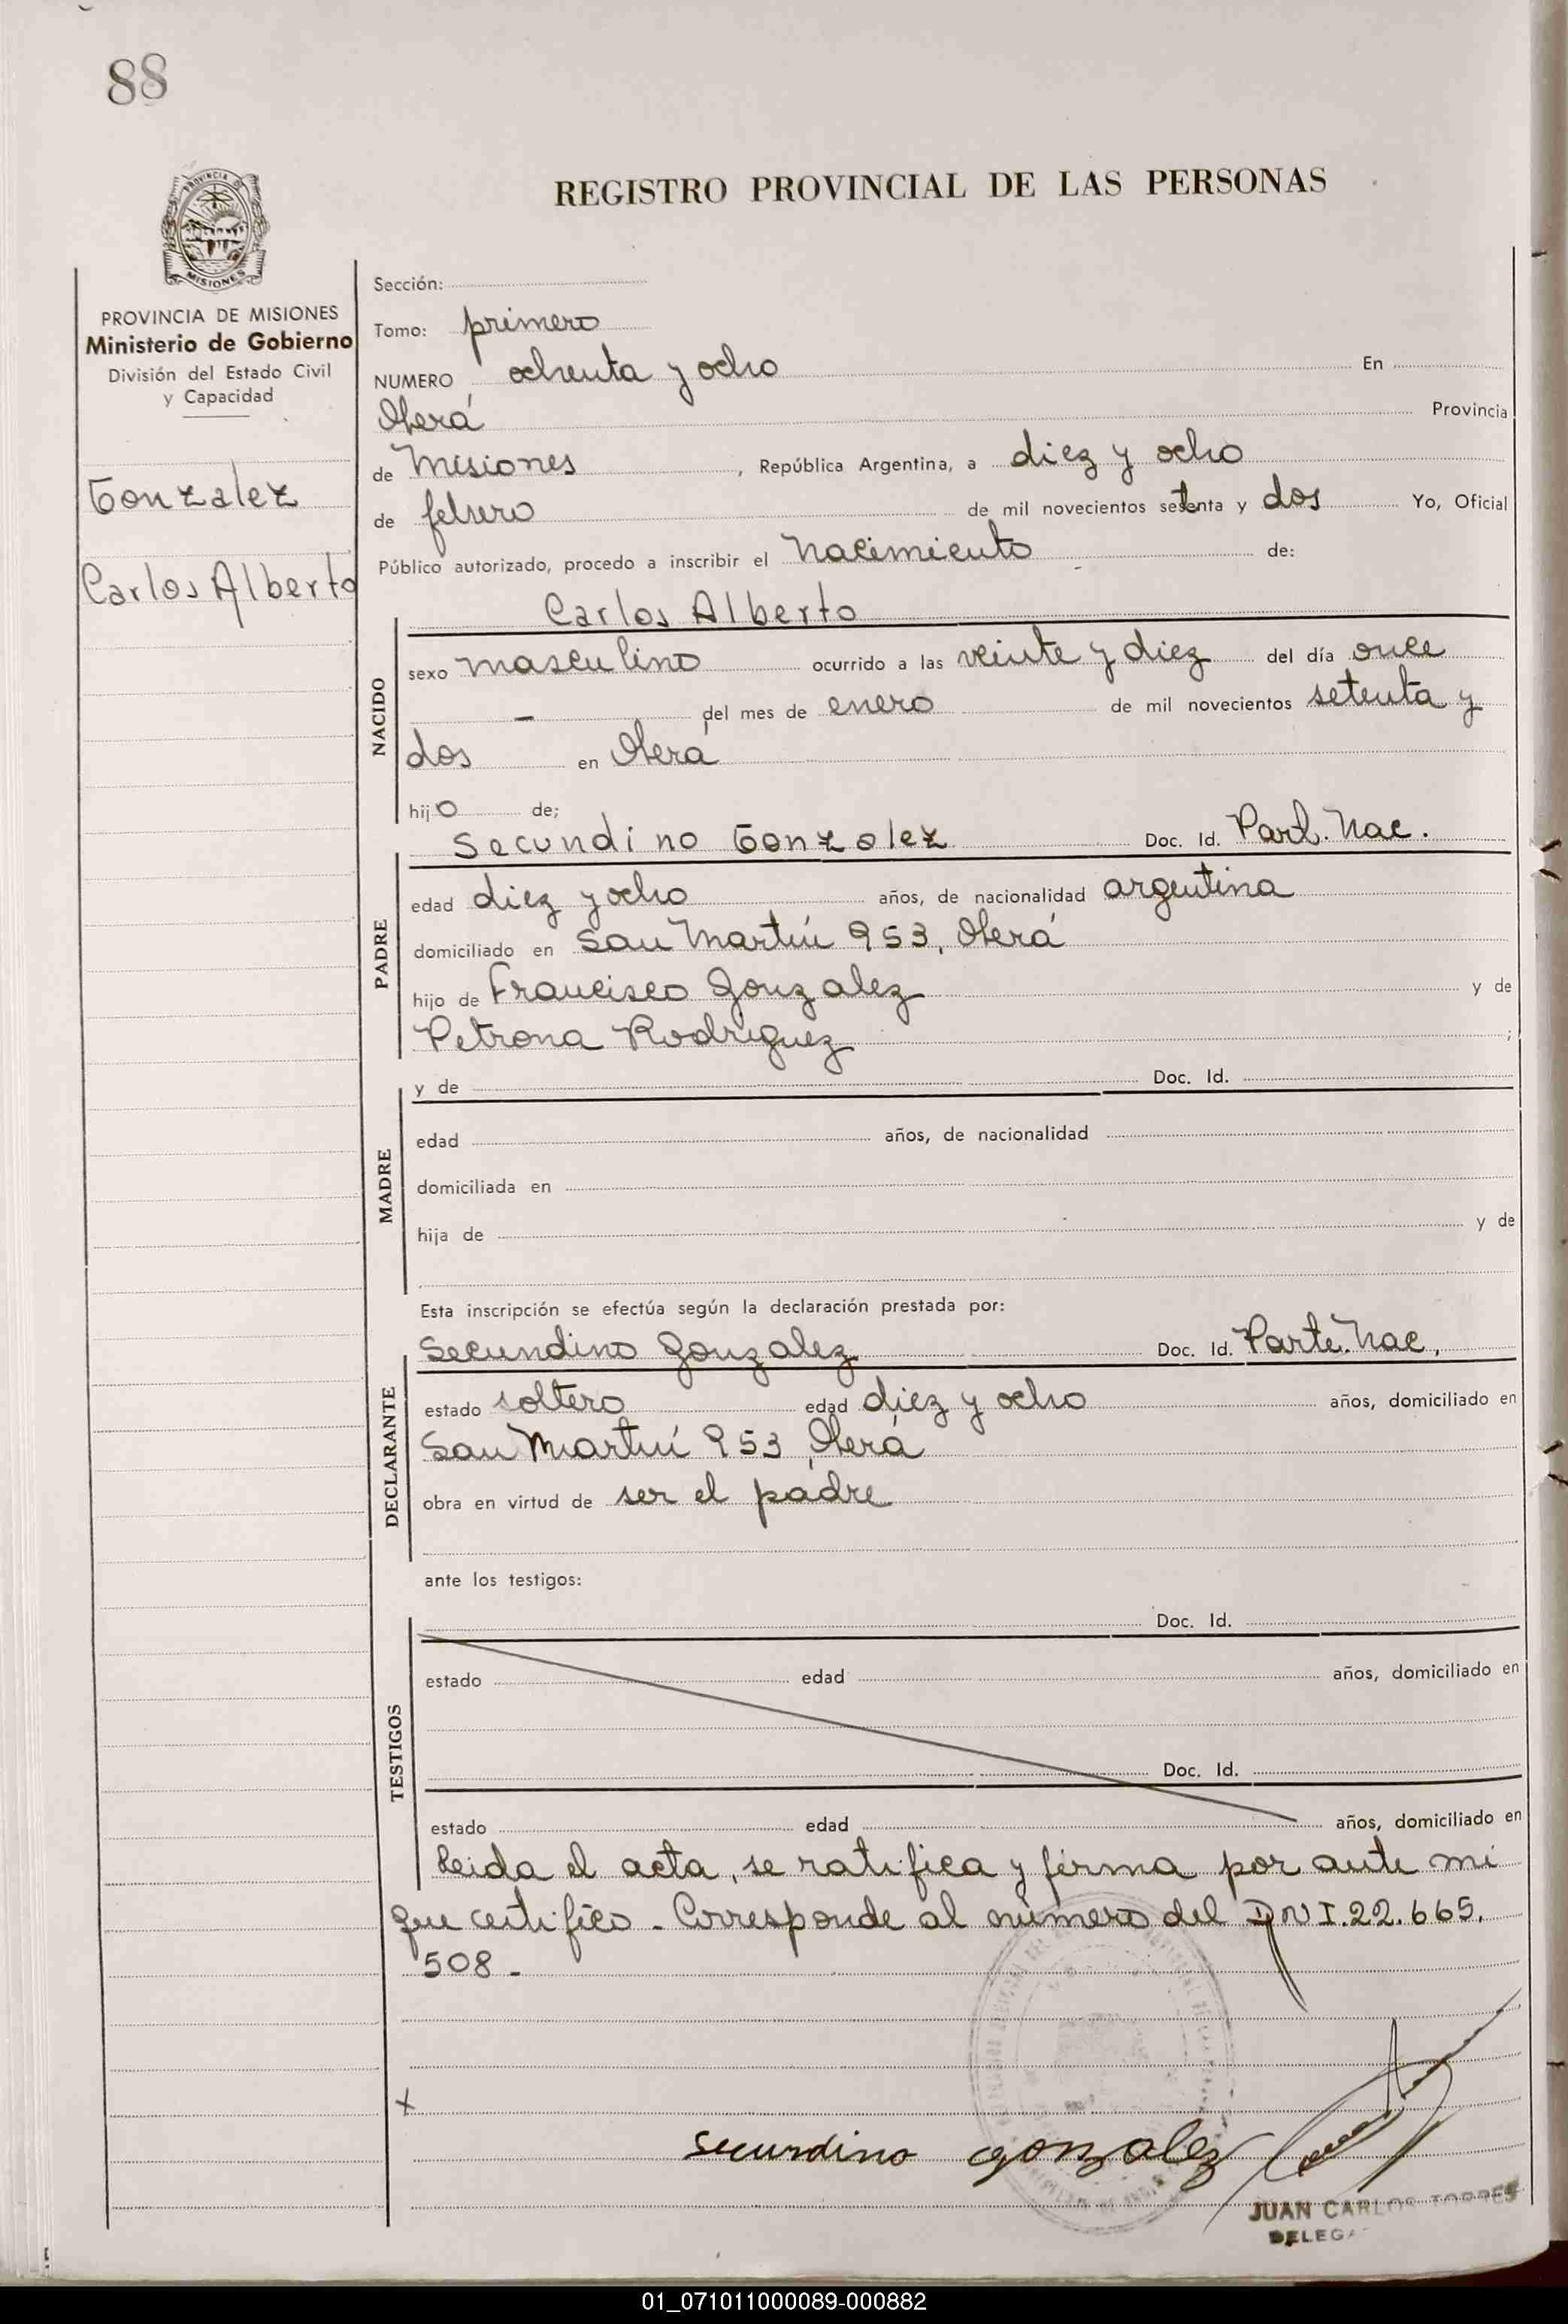 88
PROVINCIA DE
MISIONES
REGISTRO PROVINCIAL DE LAS PERSONAS
PROVINCIA DE MISIONES
Ministerio de Gobierno
División del Estado Civil
y Capacidad
Gonzalez
Carlos Alberto
Sección:
Tomo: primero
NUMERO ochenta y ocho En
Oberá Provincia
de Misiones, República Argentina, a diez y ocho
de febrero de mil novecientos setenta y dos Yo, Oficial
Público autorizado, procedo a inscribir el Nacimiento de:
Carlos Alberto
NACIDO
sexo masculino ocurrido a las veinte y diez del día once
— del mes de enero de mil novecientos setenta y
dos en Oberá
hijo de;
Secundino Gonzalez Doc. Id. Part. Nac.
PADRE
edad diez y ocho años, de nacionalidad argentina
domiciliado en San Martín 953, Oberá
hijo de Francisco Gonzalez y de
Petrona Rodriguez ;
MADRE
y de Doc. Id.
edad años, de nacionalidad
domiciliada en
hija de y de
Esta inscripción se efectúa según la declaración prestada por:
Secundino Gonzalez Doc. Id. Parte. Nac.
DECLARANTE
estado soltero edad diez y ocho años, domiciliado en
San Martín 953, Oberá
obra en virtud de ser el padre
ante los testigos:
TESTIGOS
Doc. Id.
estado edad años, domiciliado en
Doc. Id.
estado edad años, domiciliado en
Leida el acta, se ratifica y firma por ante mi
que certifico. Corresponde al número del DNI.22.665.
508-
x
secundino gonzalez
JUAN CARLOS TORRES
01_071011000089-000882